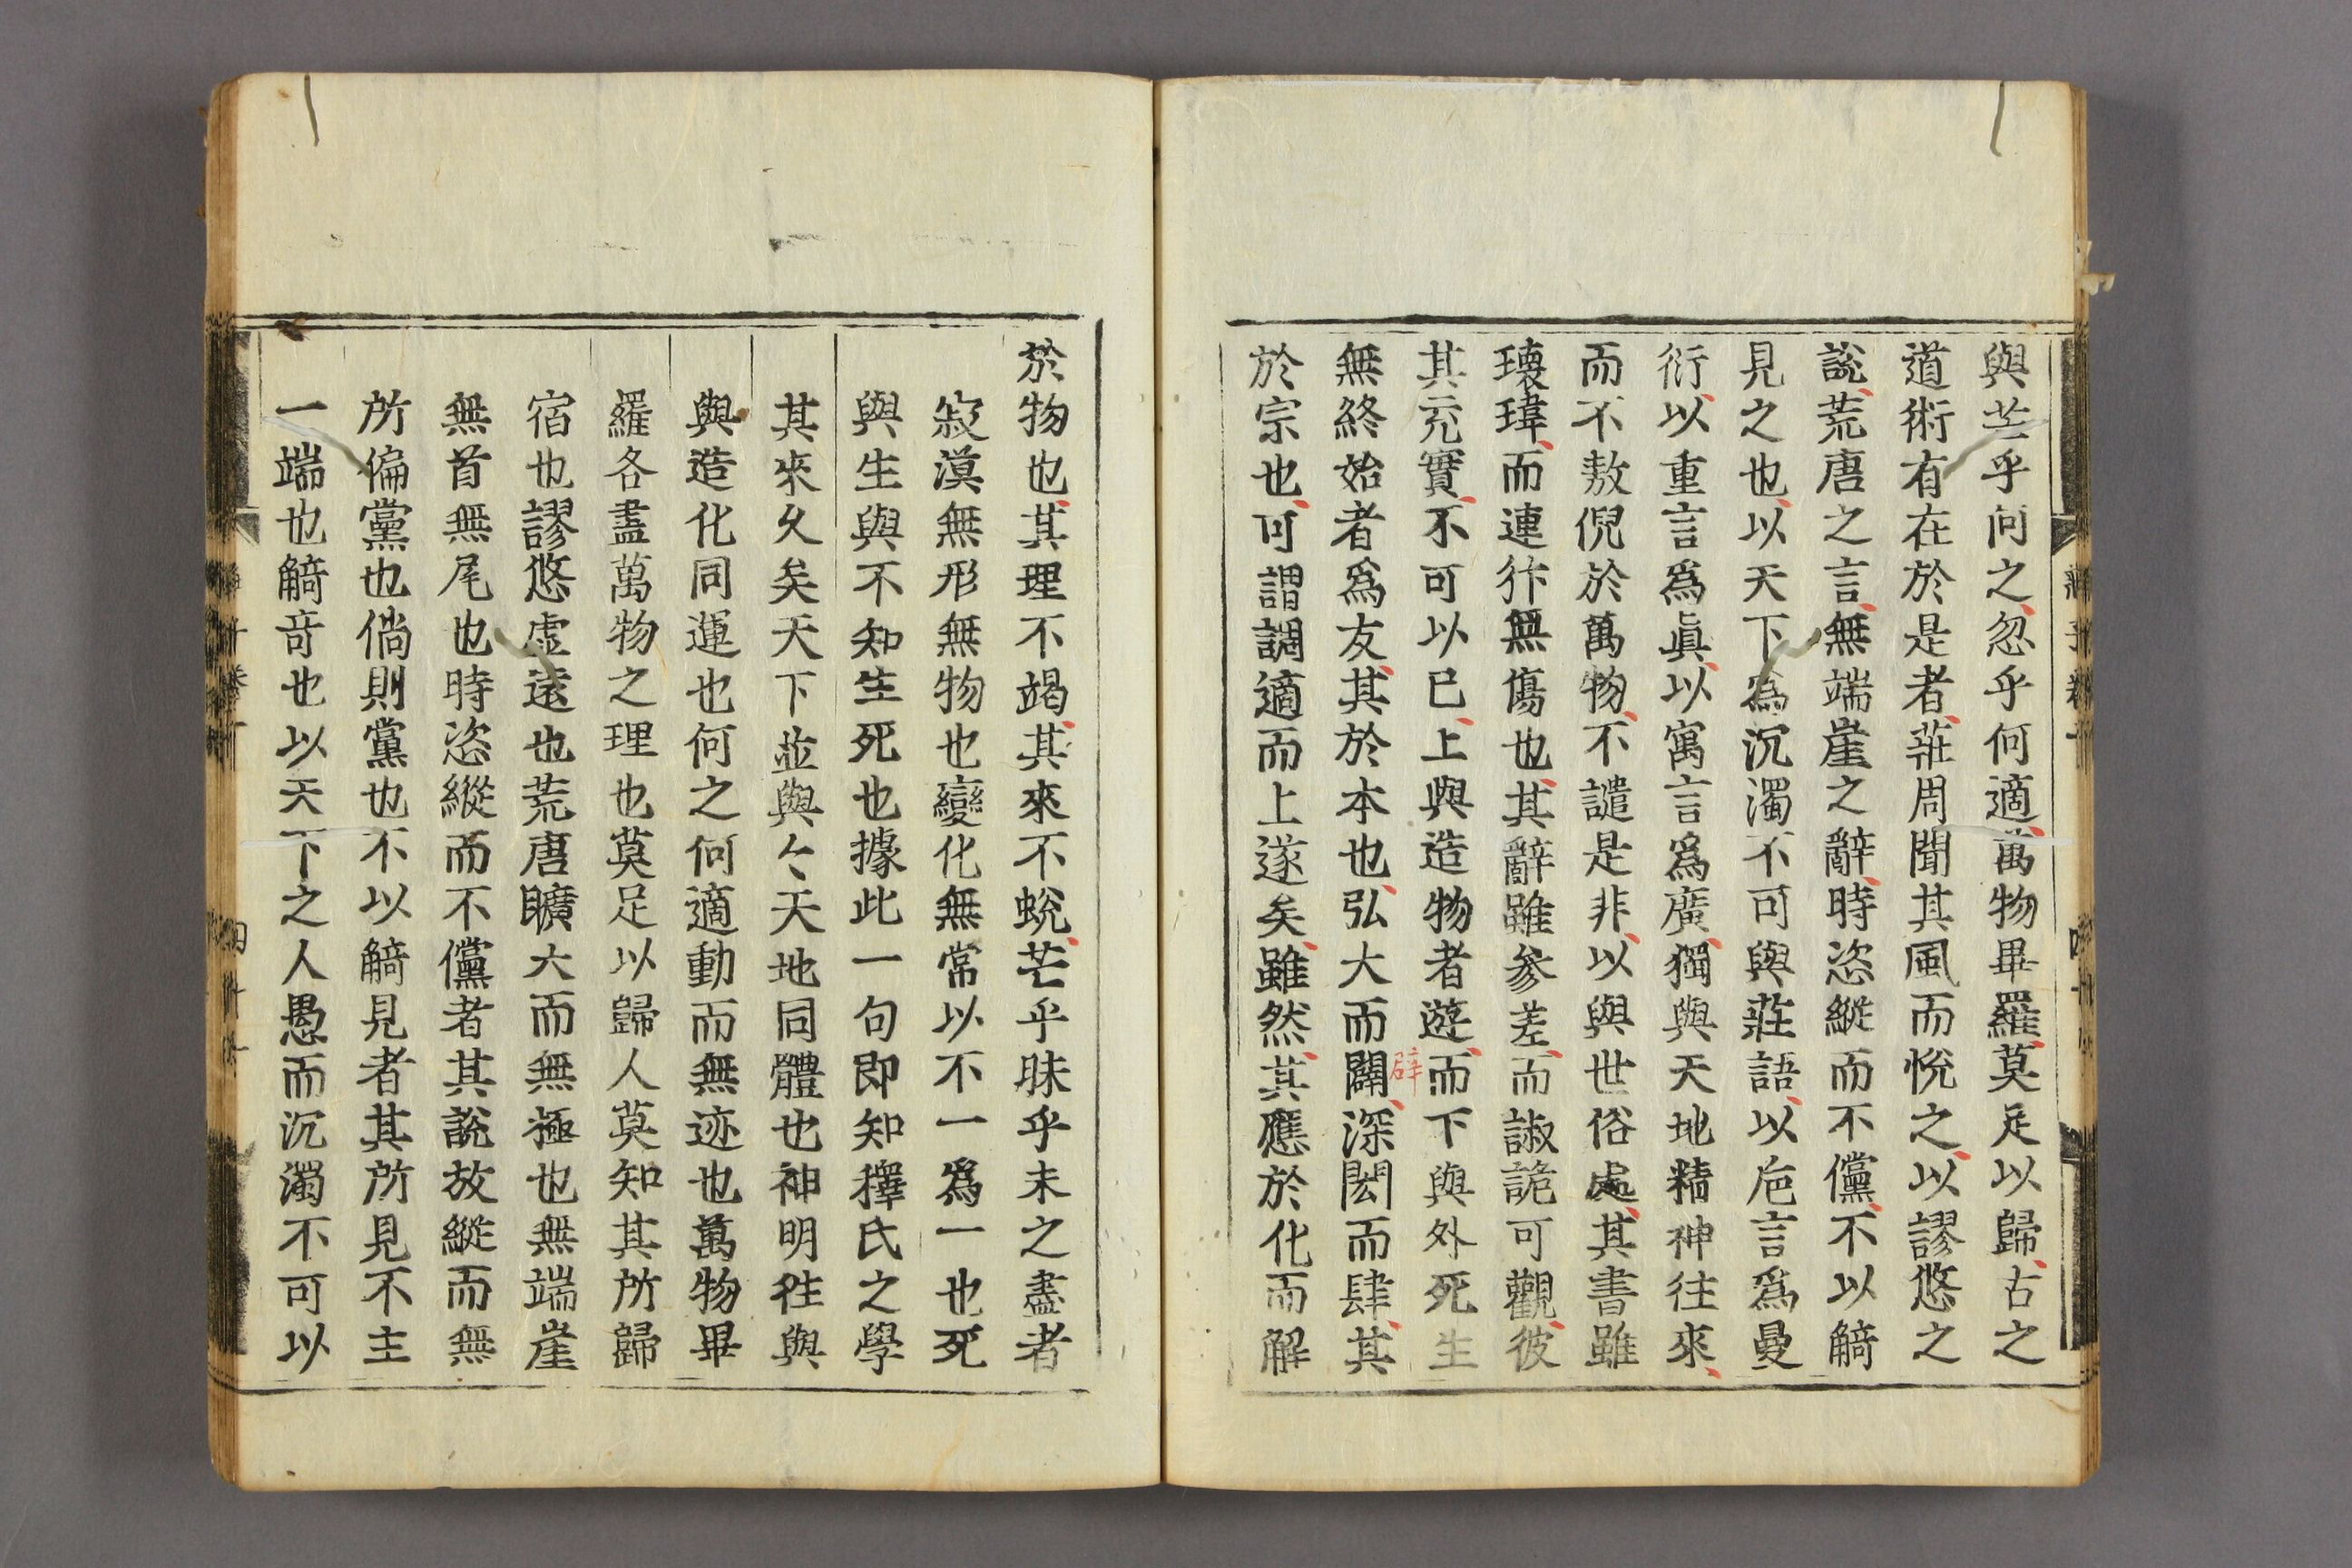 與芒乎何之忽乎何適萬物畢羅莫足以歸古之
道術有在於是者莊周聞其風而悅之以謬悠之
說荒唐之言無端崖之辭時恣縱而不儻不以觭
見之也以天下爲沉濁不可與莊語以巵言爲曼
衍以重言爲眞以寓言爲廣獨與天地精神往來
而不敖倪於萬物不譴是非以與世俗處其書雖
瓌瑋而連犿無傷也其辭雖參差而諔詭可觀彼
其充實不可以已上與造物者遊而下與外死生
無終始者爲友其於本也弘大而闢深閎而肆其
辟
於宗也可謂調適而上遂矣雖然其應於化而解
於物也其理不竭其來不蛻芒乎昧乎未之盡者
寂漠無形無物也變化無常以不一爲一也死
與生與不知生死也據此一句即知釋氏之學
其來久矣天下並與〻天地同體也神明往與
與造化同運也何之何適動而無迹也萬物畢
羅各盡萬物之理也莫足以歸人莫知其所歸
宿也謬悠虛遠也荒唐曠大而無極也無端崖
無首無尾也時恣縱而不儻者其說放縱而無
所偏黨也倘則黨也不以觭見者其所見不主
一端也觭音也以天下之人愚而沉濁不可以